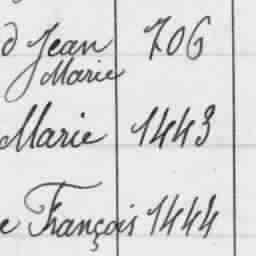 d Jean 706
Marie
Marie 1443
e François 1444